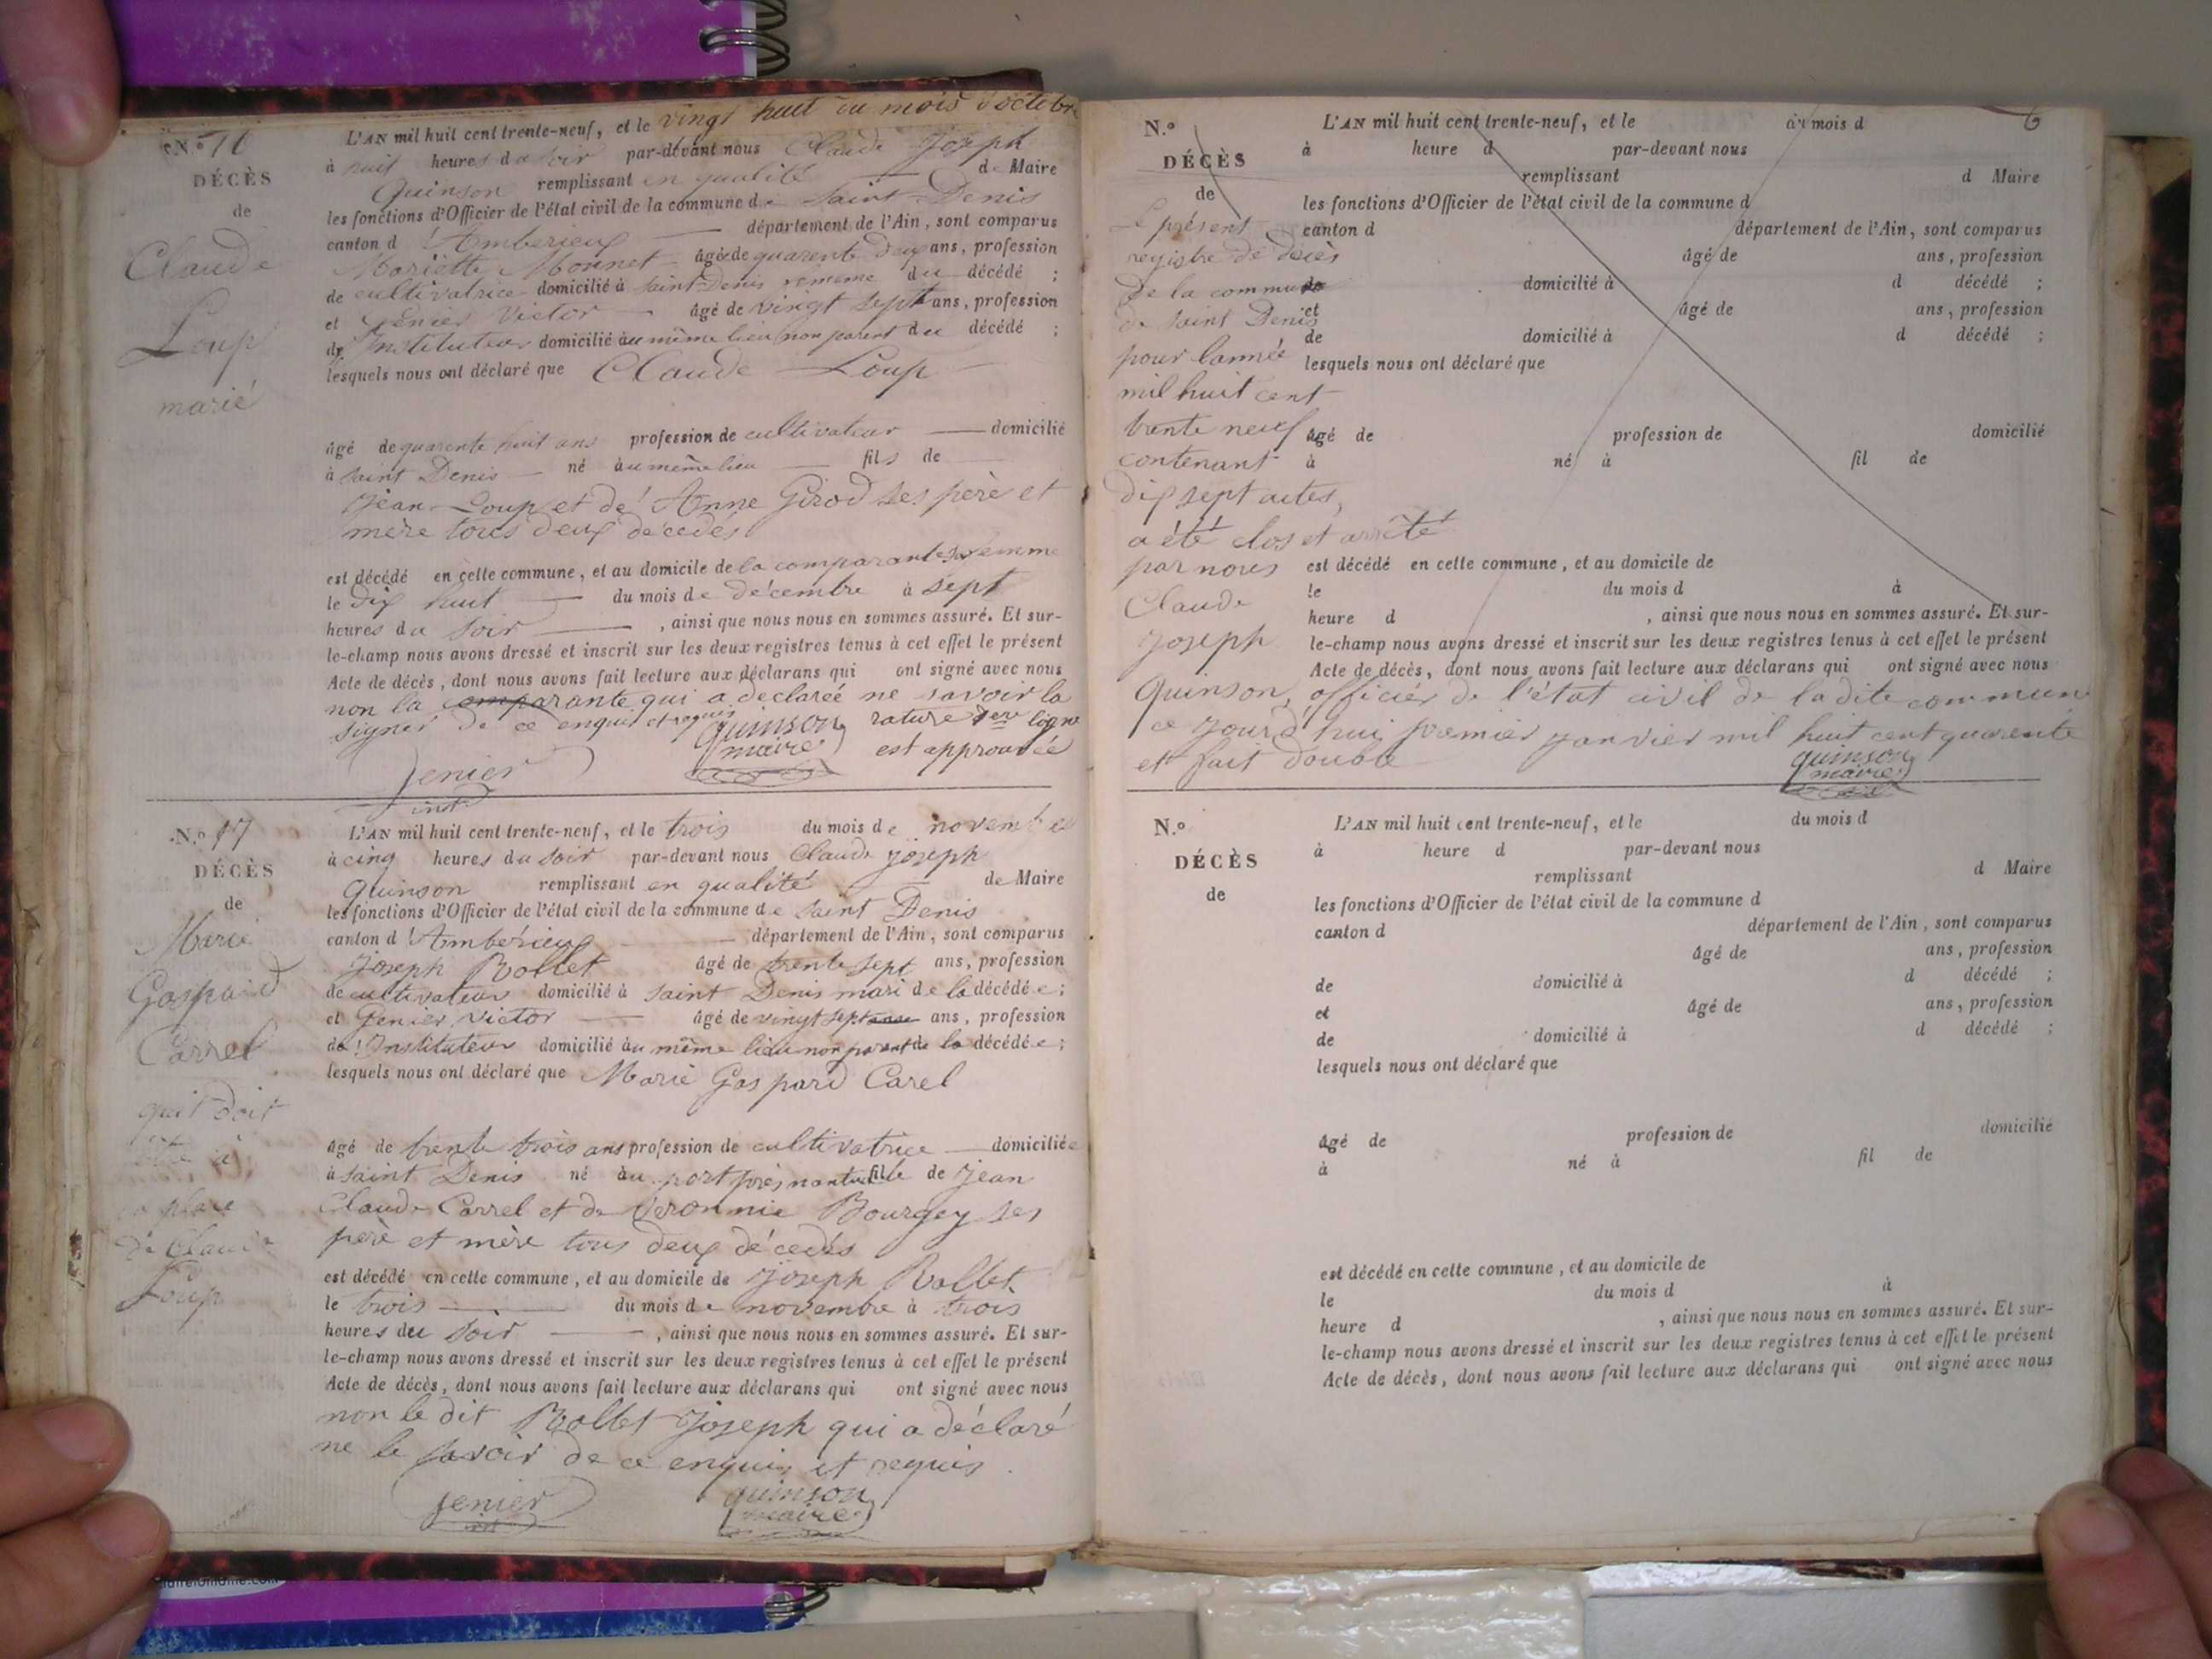 N.º 16
DÉCÈS
de
Claude
Loup
marié
L'AN mil huit cent trente-neuf, et le vingt huit du mois d'octobre
à huit heures du soir par-devant nous Claude Joseph
Quinson remplissant en qualité de Maire
les fonctions d'Officier de l'état civil de la commune de Saint Denis
canton d'Amberieux département de l'Ain, sont comparus
Mariette Monnet âgée de quarente deux ans, profession
de cultivatrice domicilié à Saint-Denis du décédé ;
et Jenier Victor âgé de vingt sept ans, profession
d'Instituteur domicilié au même lieu non parent du décédé ;
lesquels nous ont déclaré que Claude Loup
âgé de quarente huit ans profession de cultivateur domicilié
à Saint Denis né au même lieu fils de
Jean Loup et de Anne Girod ses père et
mère tous deux décédés
est décédé en cette commune, et au domicile de la comparante sa femme
le dix huit du mois de décembre à sept
heures du soir , ainsi que nous nous en sommes assuré. Et sur-
le-champ nous avons dressé et inscrit sur les deux registres tenus à cet effet le présent
Acte de décès, dont nous avons fait lecture aux déclarans qui ont signé avec nous
non la comparante qui a declareé ne savoir la
signer de ce enquis et requis rature 1ere ligne
quinson maire est approuvée
Jenier
inst
N.º 17
DÉCÈS
de
Marie
Gaspard
Carrel
quit doit
être à
la place
de Claude
Loup
L'AN mil huit cent trente-neuf, et le trois du mois de novembre
à cinq heures du soir par-devant nous Claude joseph
Quinson remplissant en qualité de Maire
les fonctions d'Officier de l'état civil de la commune de Saint Denis
canton d'Ambérieux département de l'Ain, sont comparus
Joseph Rollet âgé de trente sept ans, profession
de cultivateur domicilié à Saint Denis mari de la décédée ;
et Jenier Victor âgé de vingt sept ans, profession
d'Instituteur domicilié au même lieu non parent de la décédée ;
lesquels nous ont déclaré que Marie Gaspard Carel
âgé de trente trois ans profession de cultivatrice domiciliée
à Saint Denis né au port près nantua fille de Jean
Claude Carrel et de Veronnie Bourgey ses
père et mère tous deux décedés
est décédé en cette commune, et au domicile de Joseph Rollet
le trois du mois de novembre à trois
heures du soir , ainsi que nous nous en sommes assuré. Et sur-
le-champ nous avons dressé et inscrit sur les deux registres tenus à cet effet le présent
Acte de décès, dont nous avons fait lecture aux déclarans qui ont signé avec nous
non le dit Rollet Joseph qui a déclaré
ne le savoir de ce enquis et requis.
Jenier quinson
maire
6
N.º
DÉCÈS
de
L'AN mil huit cent trente-neuf, et le du mois d
à heure d par-devant nous
remplissant d Maire
les fonctions d'Officier de l'état civil de la commune d
canton d département de l'Ain, sont comparus
âgé de ans, profession
de domicilié à d décédé ;
et âgé de ans, profession
de domicilié à d décédé ;
lesquels nous ont déclaré que
âgé de profession de domicilié
à né à fil de
est décédé en cette commune, et au domicile de
le du mois d à
heure d , ainsi que nous nous en sommes assuré. Et sur-
le-champ nous avons dressé et inscrit sur les deux registres tenus à cet effet le présent
Acte de décès, dont nous avons fait lecture aux déclarans qui ont signé avec nous
Le présent
registre de décès
de la commune
de Saint Denis
pour l'année
mil huit cent
trente neuf
contenant
dix sept actes,
a été clos et arrêté
par nous
Claude
Joseph
Quinson, officier de l'état civil de la dite commune
ce jourd'hui premier janvier mil huit cent quarente
et fait double
quinson
maire
N.º
DÉCÈS
de
L'AN mil huit cent trente-neuf, et le du mois d
à heure d par-devant nous
remplissant d Maire
les fonctions d'Officier de l'état civil de la commune d
canton d département de l'Ain, sont comparus
âgé de ans, profession
de domicilié à d décédé ;
et âgé de ans, profession
de domicilié à d décédé ;
lesquels nous ont déclaré que
âgé de profession de domicilié
à né à fil de
est décédé en cette commune, et au domicile de
le du mois d à
heure d , ainsi que nous nous en sommes assuré. Et sur-
le-champ nous avons dressé et inscrit sur les deux registres tenus à cet effet le présent
Acte de décès, dont nous avons fait lecture aux déclarans qui ont signé avec nous